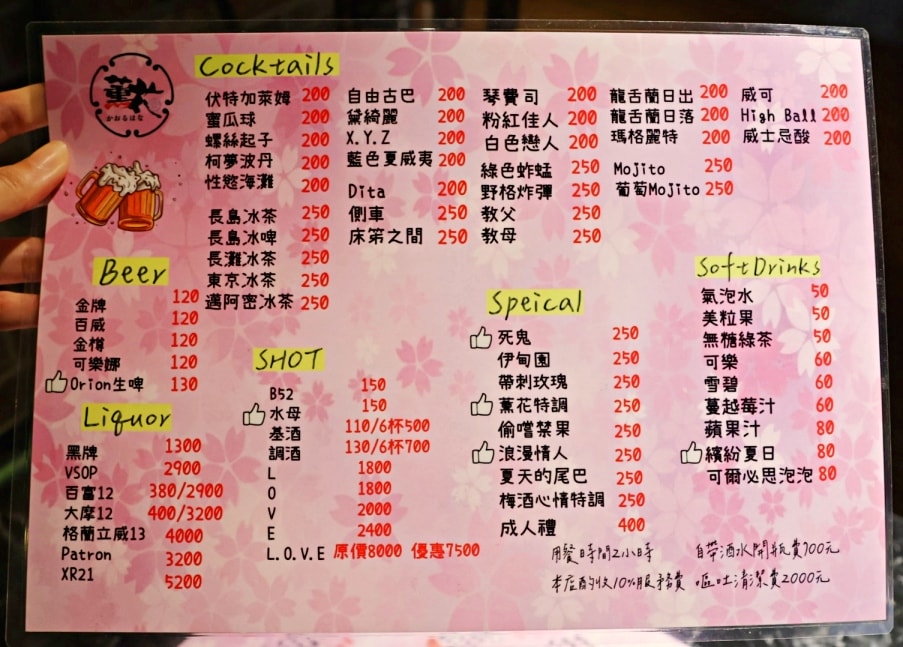 薫花
かおるはな
Cocktails
伏特加萊姆 200
蜜瓜球 200
螺絲起子 200
柯夢波丹 200
性慾海灘 200
長島冰茶 250
長島冰啤 250
長灘冰茶 250
東京冰茶 250
邁阿密冰茶 250
自由古巴 200
黛綺麗 200
X.Y.Z 200
藍色夏威夷 200
Dita 200
側車 250
床笫之間 250
琴費司 200
粉紅佳人 200
白色戀人 200
綠色蚱蜢 250
野格炸彈 250
教父 250
教母 250
龍舌蘭日出 200
龍舌蘭日落 200
瑪格麗特 200
Mojito 250
葡萄Mojito 250
威可 200
High Ball 200
威士忌酸 200
Beer
金牌 120
百威 120
金樽 120
可樂娜 120
Orion生啤 130
Liquor
黑牌 1300
VSOP 2900
百富12 380/2900
大摩12 400/3200
格蘭立威13 4000
Patron 3200
XR21 5200
SHOT
B52 150
水母 150
基酒 110/6杯500
調酒 130/6杯700
L 1800
O 1800
V 2000
E 2400
L.O.V.E 原價8000 優惠7500
Speical
死鬼 250
伊甸園 250
帶刺玫瑰 250
薫花特調 250
偷嚐禁果 250
浪漫情人 250
夏天的尾巴 250
梅酒心情特調 250
成人禮 400
Soft Drinks
氣泡水 50
美粒果 50
無糖綠茶 50
可樂 60
雪碧 60
蔓越莓汁 60
蘋果汁 80
繽紛夏日 80
可爾必思泡泡 80
用餐時間2小時 自帶酒水開瓶費700元
本店酌收10%服務費 嘔吐清潔費2000元